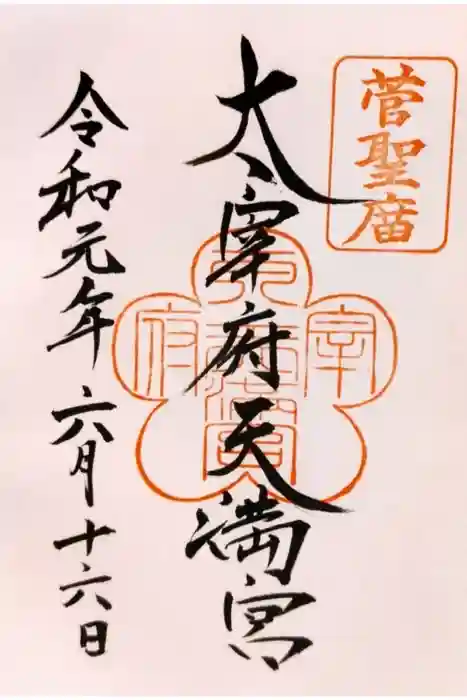 菅聖庿
太宰府天満宮
令和元年六月十六日